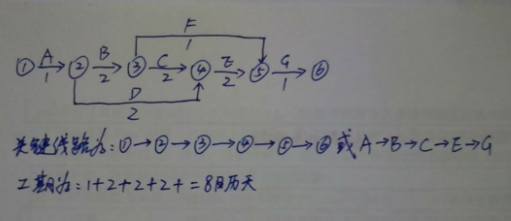 F
1
① A 1 ② B 2 ③ C 2 ④ E 2 ⑤ G 1 ⑥
D
2
关键线路为：①→②→③→④→⑤→⑥或A→B→C→E→G
工期为：1+2+2+2+=8日历天